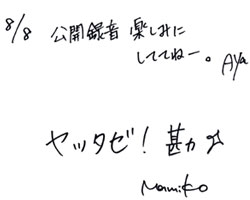 8/8 公開録音 楽しみに
しててねー。 AYA
ヤッタゼ! 甚力
Namiko